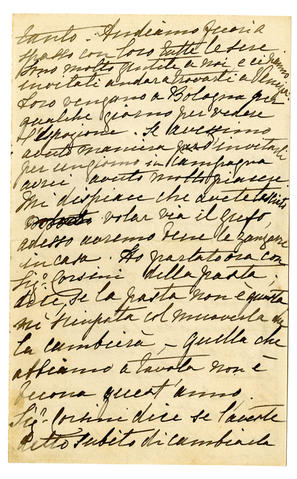 tanto. Andiamo quasi a
spasso con loro tutte le sere.
Sono molto gentili a noi e ci hanno
invitati andar a trovarli a
Loro vengono a Bologna per
qualche giorno per vedere
l'Esposizione. Se avessimo
avuto maniera d'invitarli
per un giorno in campagna
avrei avuto molto piacere.
Mi dispiace che avete lasciato
volar via il
adesso avremo bene le zanzare
in casa. Ho parlato ora con
Sig. Corsini della pasta.
dice, se la pasta non è questa
mi stampata col muoverla
la cambierà, – quella che
abbiamo a tavola non è
buona quest'anno.
Sig. Corsini dice se l'avete
detto subito di cambiarla